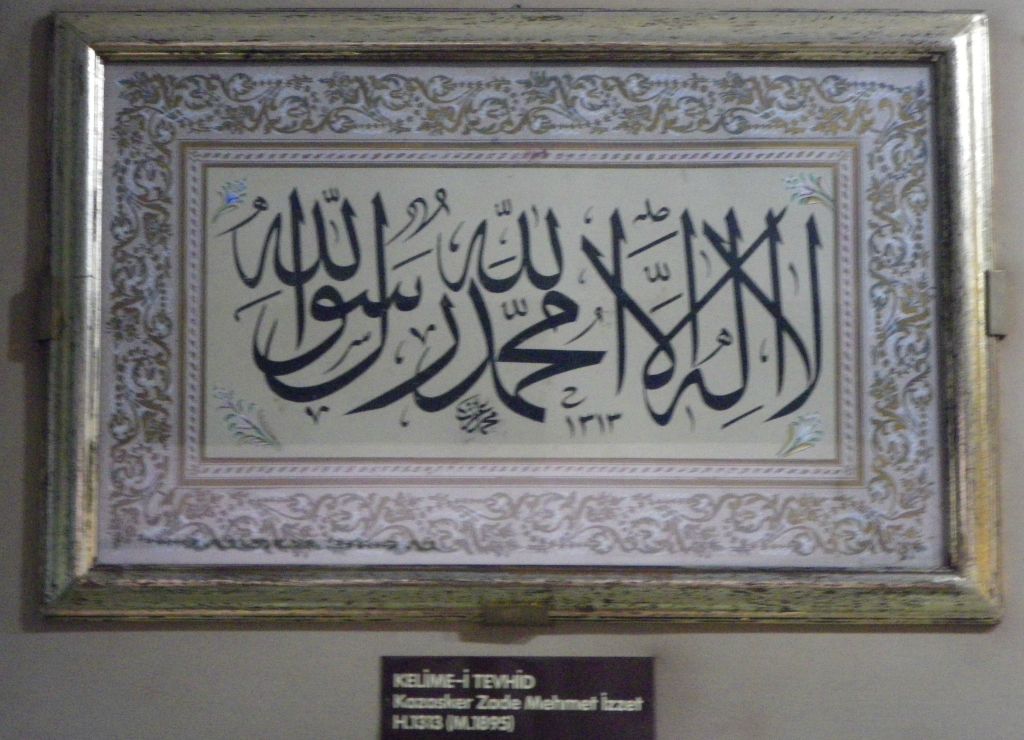 لا اله الا الله محمد رسول الله
١٣١٣
KELİME-İ TEVHİD
Kazasker Zade Mehmet İzzet
H.1313 (M.1895)